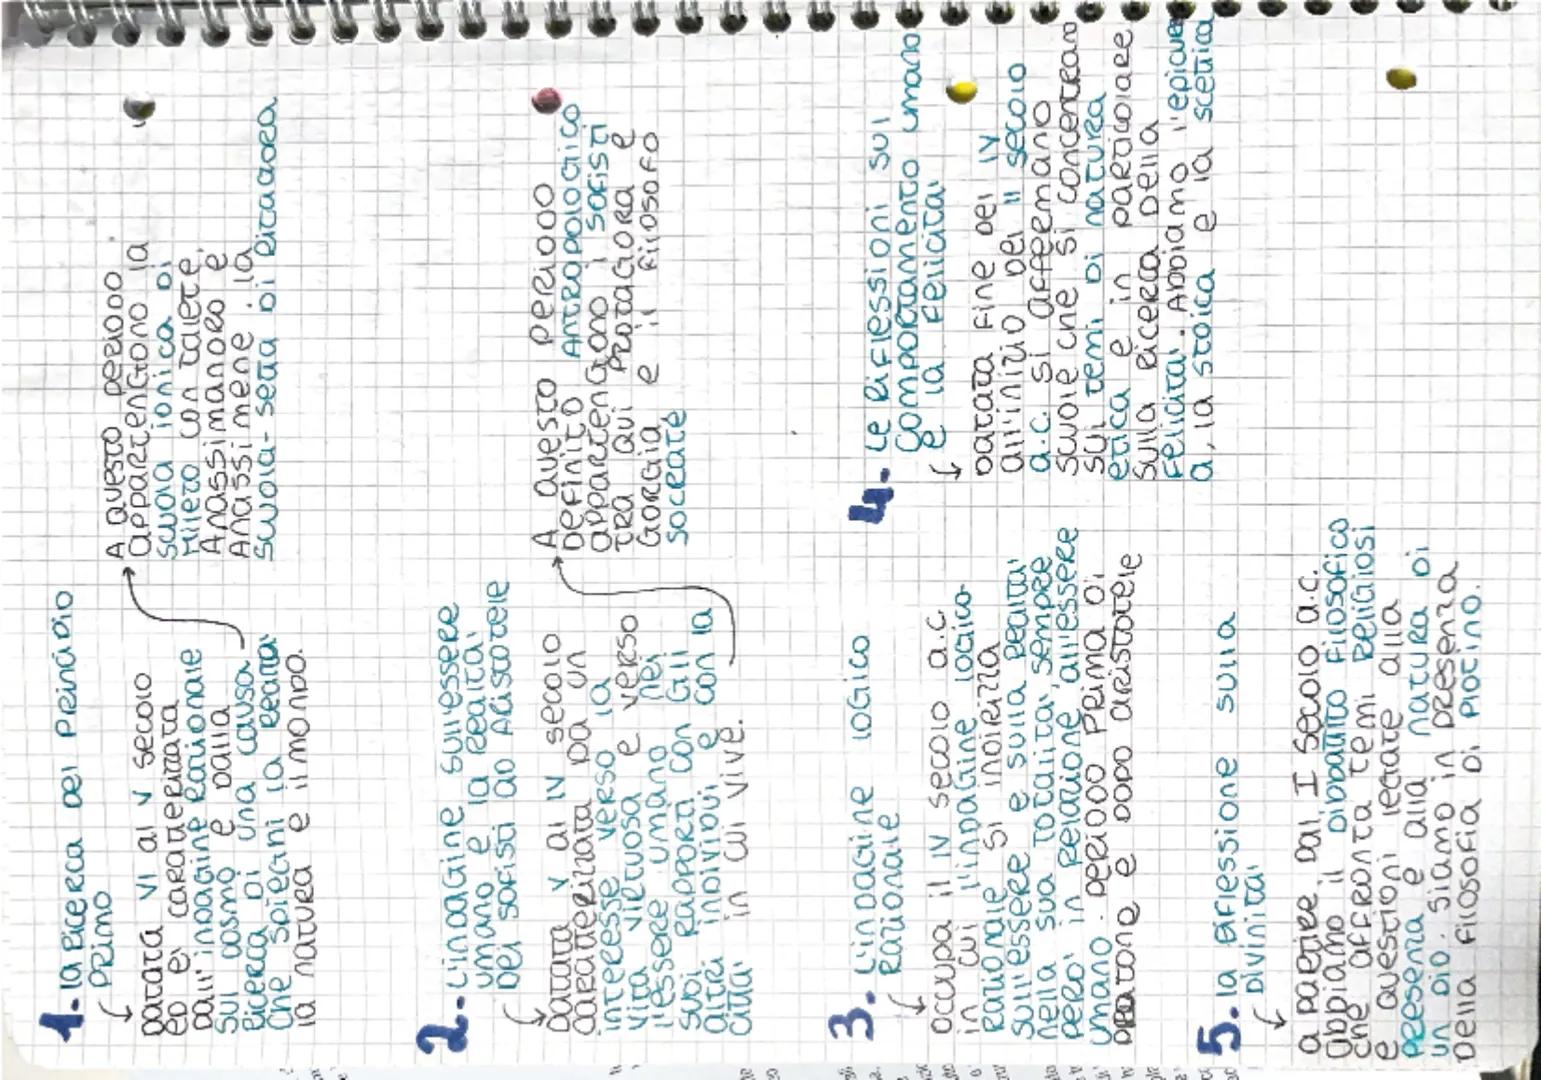 1. la Ricerca Del Principio
Primo
Datata VI al V secolo
ed e' caratterizzata
Dall'indagine Razionale
sul cosmo e dalla
Ricerca Di una causa
che spieghi la Realta'
la natura e il mondo.
A questo periodo
appartengono la
scuola ionica Di
Mileto con Talete,
Anassimandro e
Anassimene; la
scuola-setta Di Pitagora
2. L'indagine sull'essere
umano e la Realta'
Dei sofisti ad Aristotele
Datata V al IV secolo
caratterizzata da un
interesse verso la
vita virtuosa e verso
l'essere umano nei
suoi Rapporti con Gli
altri individui e con la
citta' in cui vive.
A questo periodo
Definito Antropologico
appartengono i sofisti
tra qui Protagora e
Gorgia e il filosofo
Socrate
3. L'indagine logico
Razionale
occupa il IV secolo a.c
in cui l'indagine logico-
Razionale si indirizza
sull'essere e sulla Realta'
nella sua totalita' sempre
pero' in Relazione all'essere
umano. Periodo Prima Di
Platone e dopo aristotele
4. Le Riflessioni sul
comportamento umano
e la felicita'
Datata fine del IV
all'inizio del II secolo
a.c. si affermano
scuole che si concentrano
sui temi Di natura
etica e in particolare
sulla Ricerca Della
felicita'. Abbiamo l'epicure
a, la stoica e la scettica
5. la Riflessione sulla
Divinita'
a partire Dal I secolo a.c.
abbiamo il Dibattito filosofico
che affronta temi Religiosi
e questioni legate alla
presenza e alla natura Di
un Dio. siamo in presenza
Della filosofia Di Plotino.